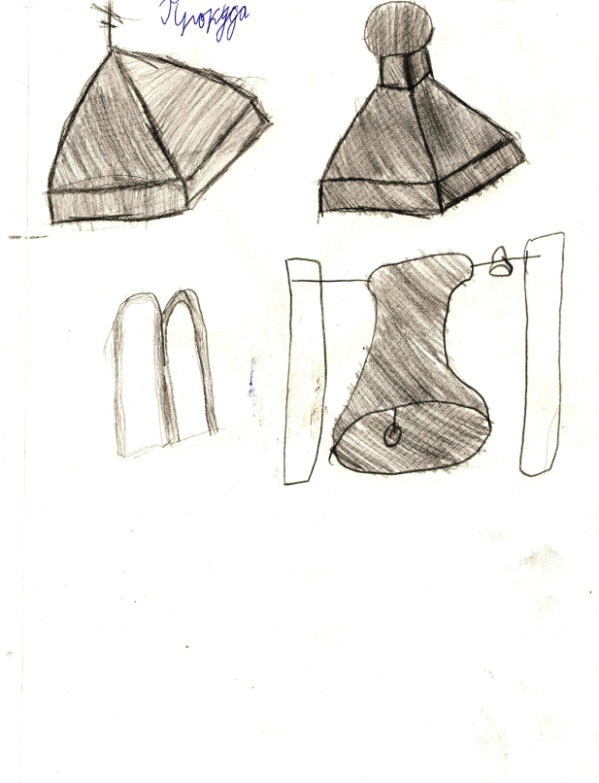 Прокуда